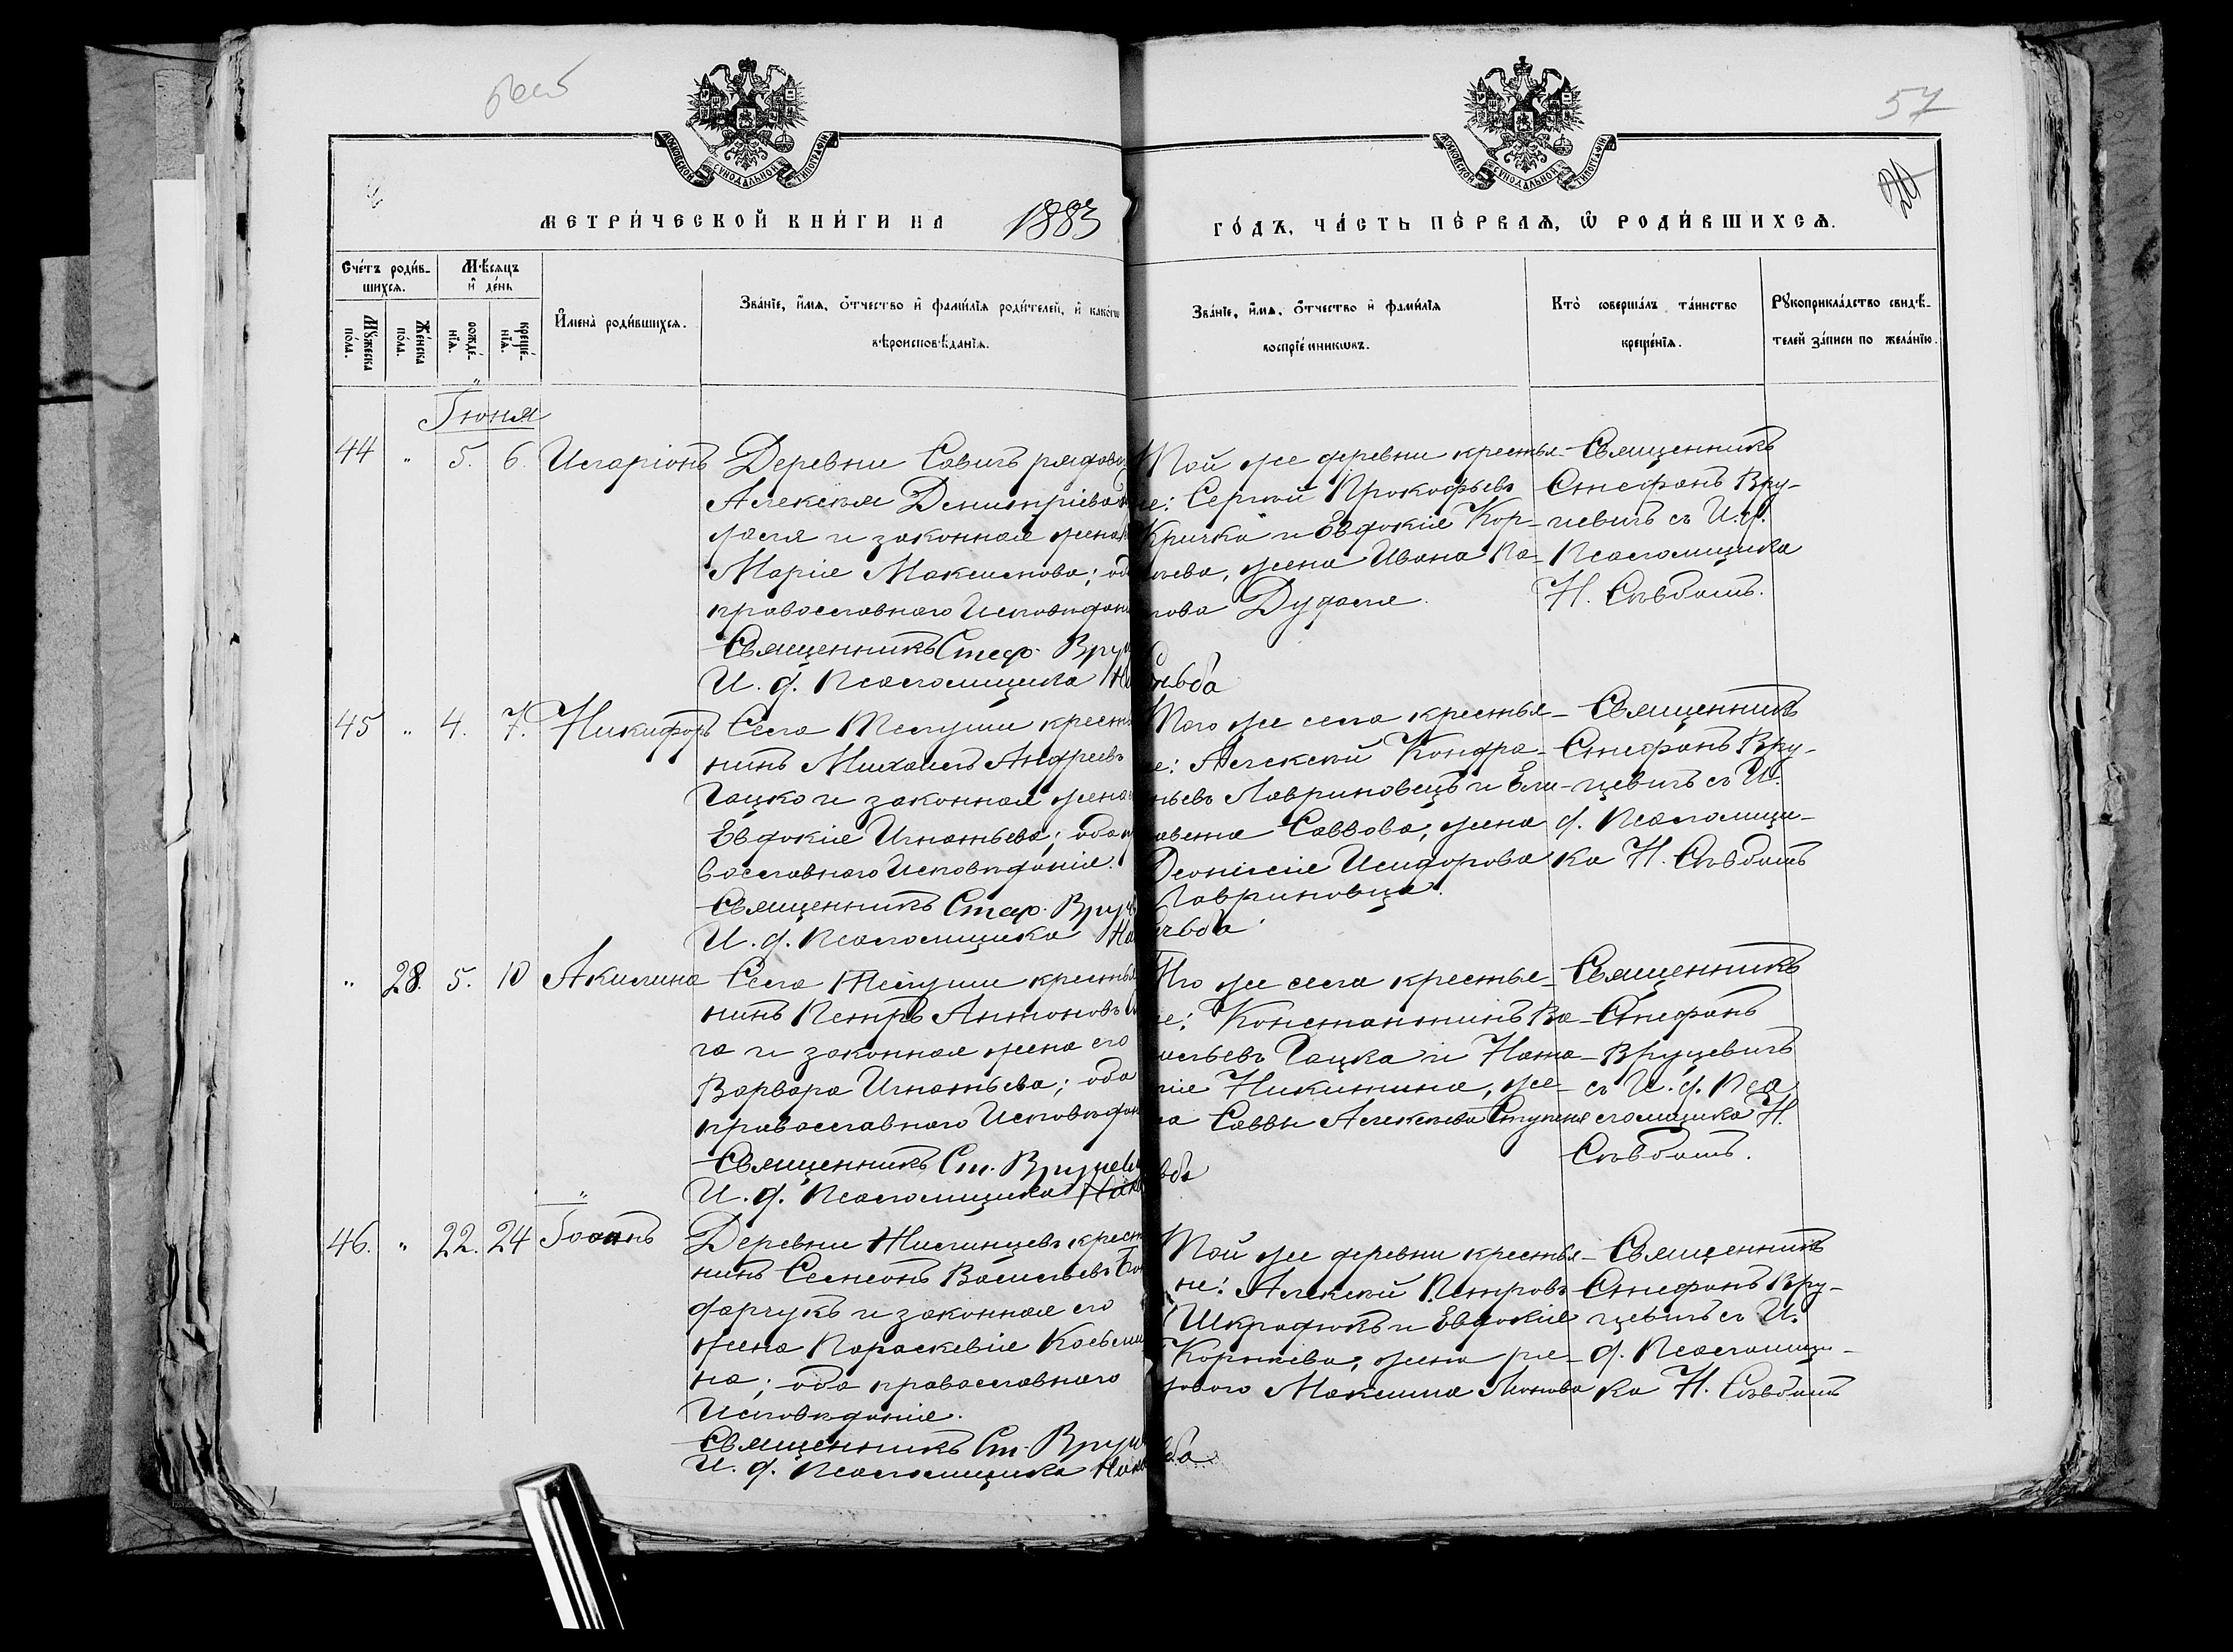 57
20
МОСКОВСКОЙ СУНОДАЛЬНОЙ ТИПОГРАФІИ
МОСКОВСКОЙ СУНОДАЛЬНОЙ ТИПОГРАФІИ
МЕТРИ́ЧЕСКОЙ КНИ́ГИ НА 1883 ГО́ДЪ, ЧА́СТЬ ПЕ́РВАЯ, Ѡ РОДИ́ВШИХСЯ.
Сче́тъ роди́в-
шихся.
Мѣ́сяцъ
и де́нь
Му́жеска по́ла.
Же́нска по́ла.
рожде́-
нїя.
креще́-
нїя.
Имена̀ роди́вшихся.
Зва́нїе, и́мя, о́тчество и фами́лїя роди́телей, и како́гѡ
вѣроисповѣ́данїя.
Зва́нїе, и́мя, о́тчество и фами́лїя
воспрїе́мникѡвъ.
Кто̀ соверша́лъ та́инство
креще́нїя.
Рукоприкла́дство свидѣ́-
телей за́писи по жела́нїю.
Іюня
44 " 5. 6. Иларіонъ
Деревни Савичъ рядово
Алексѣя Димитріева
законная жена
Марія Максимова; об
православнаго Исповѣдан
Священникъ Стеф. Вруц
И. д. Псаломщика
Той же деревни крестья-
не: Сергѣй Прокофьевъ
Кричка и Евдокія Кор-
нѣева, жена Ивана Па-
лова Дудаля.
Священникъ
Стефанъ Вру-
цевичъ съ И. д.
Псаломщика
Н.
45 " 4. 7. Никифоръ
Села Телуши крестья
нинъ Михаилъ Андреевъ
Гацко и законная жена
Евдокія Игнатьева; оба
вославнаго Исповѣданія.
Священникъ Стеф. Вруц
И. д. Псаломщика
Того же села крестья-
не: Алексѣй Кондра-
тьевъ Лавриновецъ и Ели-
савета Саввова, жена
Діонисія Исидорова
Лавриновца.
Священникъ
Стефанъ Вру-
цевичъ съ И.
д. Псаломщи-
ка Н.
" 28. 5. 10 Акилина
Села Телуши крестья
нинъ Петръ Антоновъ
га и законная жена его
Варвара Игнатьева; оба
православнаго Исповѣдан
Священникъ Ст. Вруцеви
И. д. Псаломщика
Того же села крестья-
не: Константинъ Ва-
сильевъ Гацка и Ната-
лія Никитина, же-
на Саввы Алексѣева
Священникъ
Стефанъ
Вруцевичъ
съ И. д. Пса
ломщика Н.
46. " 22. 24 Іоаннъ
Деревни Жилинцевъ крест
нинъ Семеонъ Васильевъ Бон
дарчукъ и законная его
жена Параскевія Косьми
на; оба православнаго
Исповѣданія.
Священникъ Ст. Вруц
И. д. Псаломщика
Той же деревни крестья-
не: Алексѣй Петровъ
и Евдокія
Корнѣева, жена ря-
дового Максима
Священникъ
Стефанъ Вру-
цевичъ съ И.
д. Псаломщи-
ка Н.